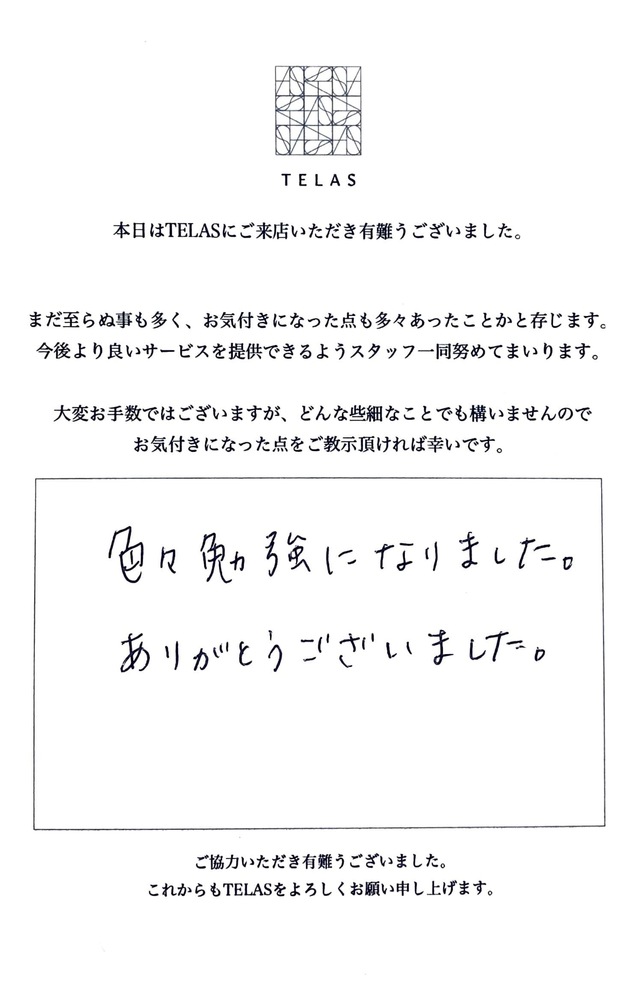 TELAS
本日はTELASにご来店いただき有難うございました。
まだ至らぬ事も多く、お気付きになった点も多々あったことかと存じます。
今後より良いサービスを提供できるようスタッフ一同努めてまいります。
大変お手数ではございますが、どんな些細なことでも構いませんので
お気付きになった点をご教示頂ければ幸いです。
色々勉強になりました。
ありがとうございました。
ご協力いただき有難うございました。
これからもTELASをよろしくお願い申し上げます。